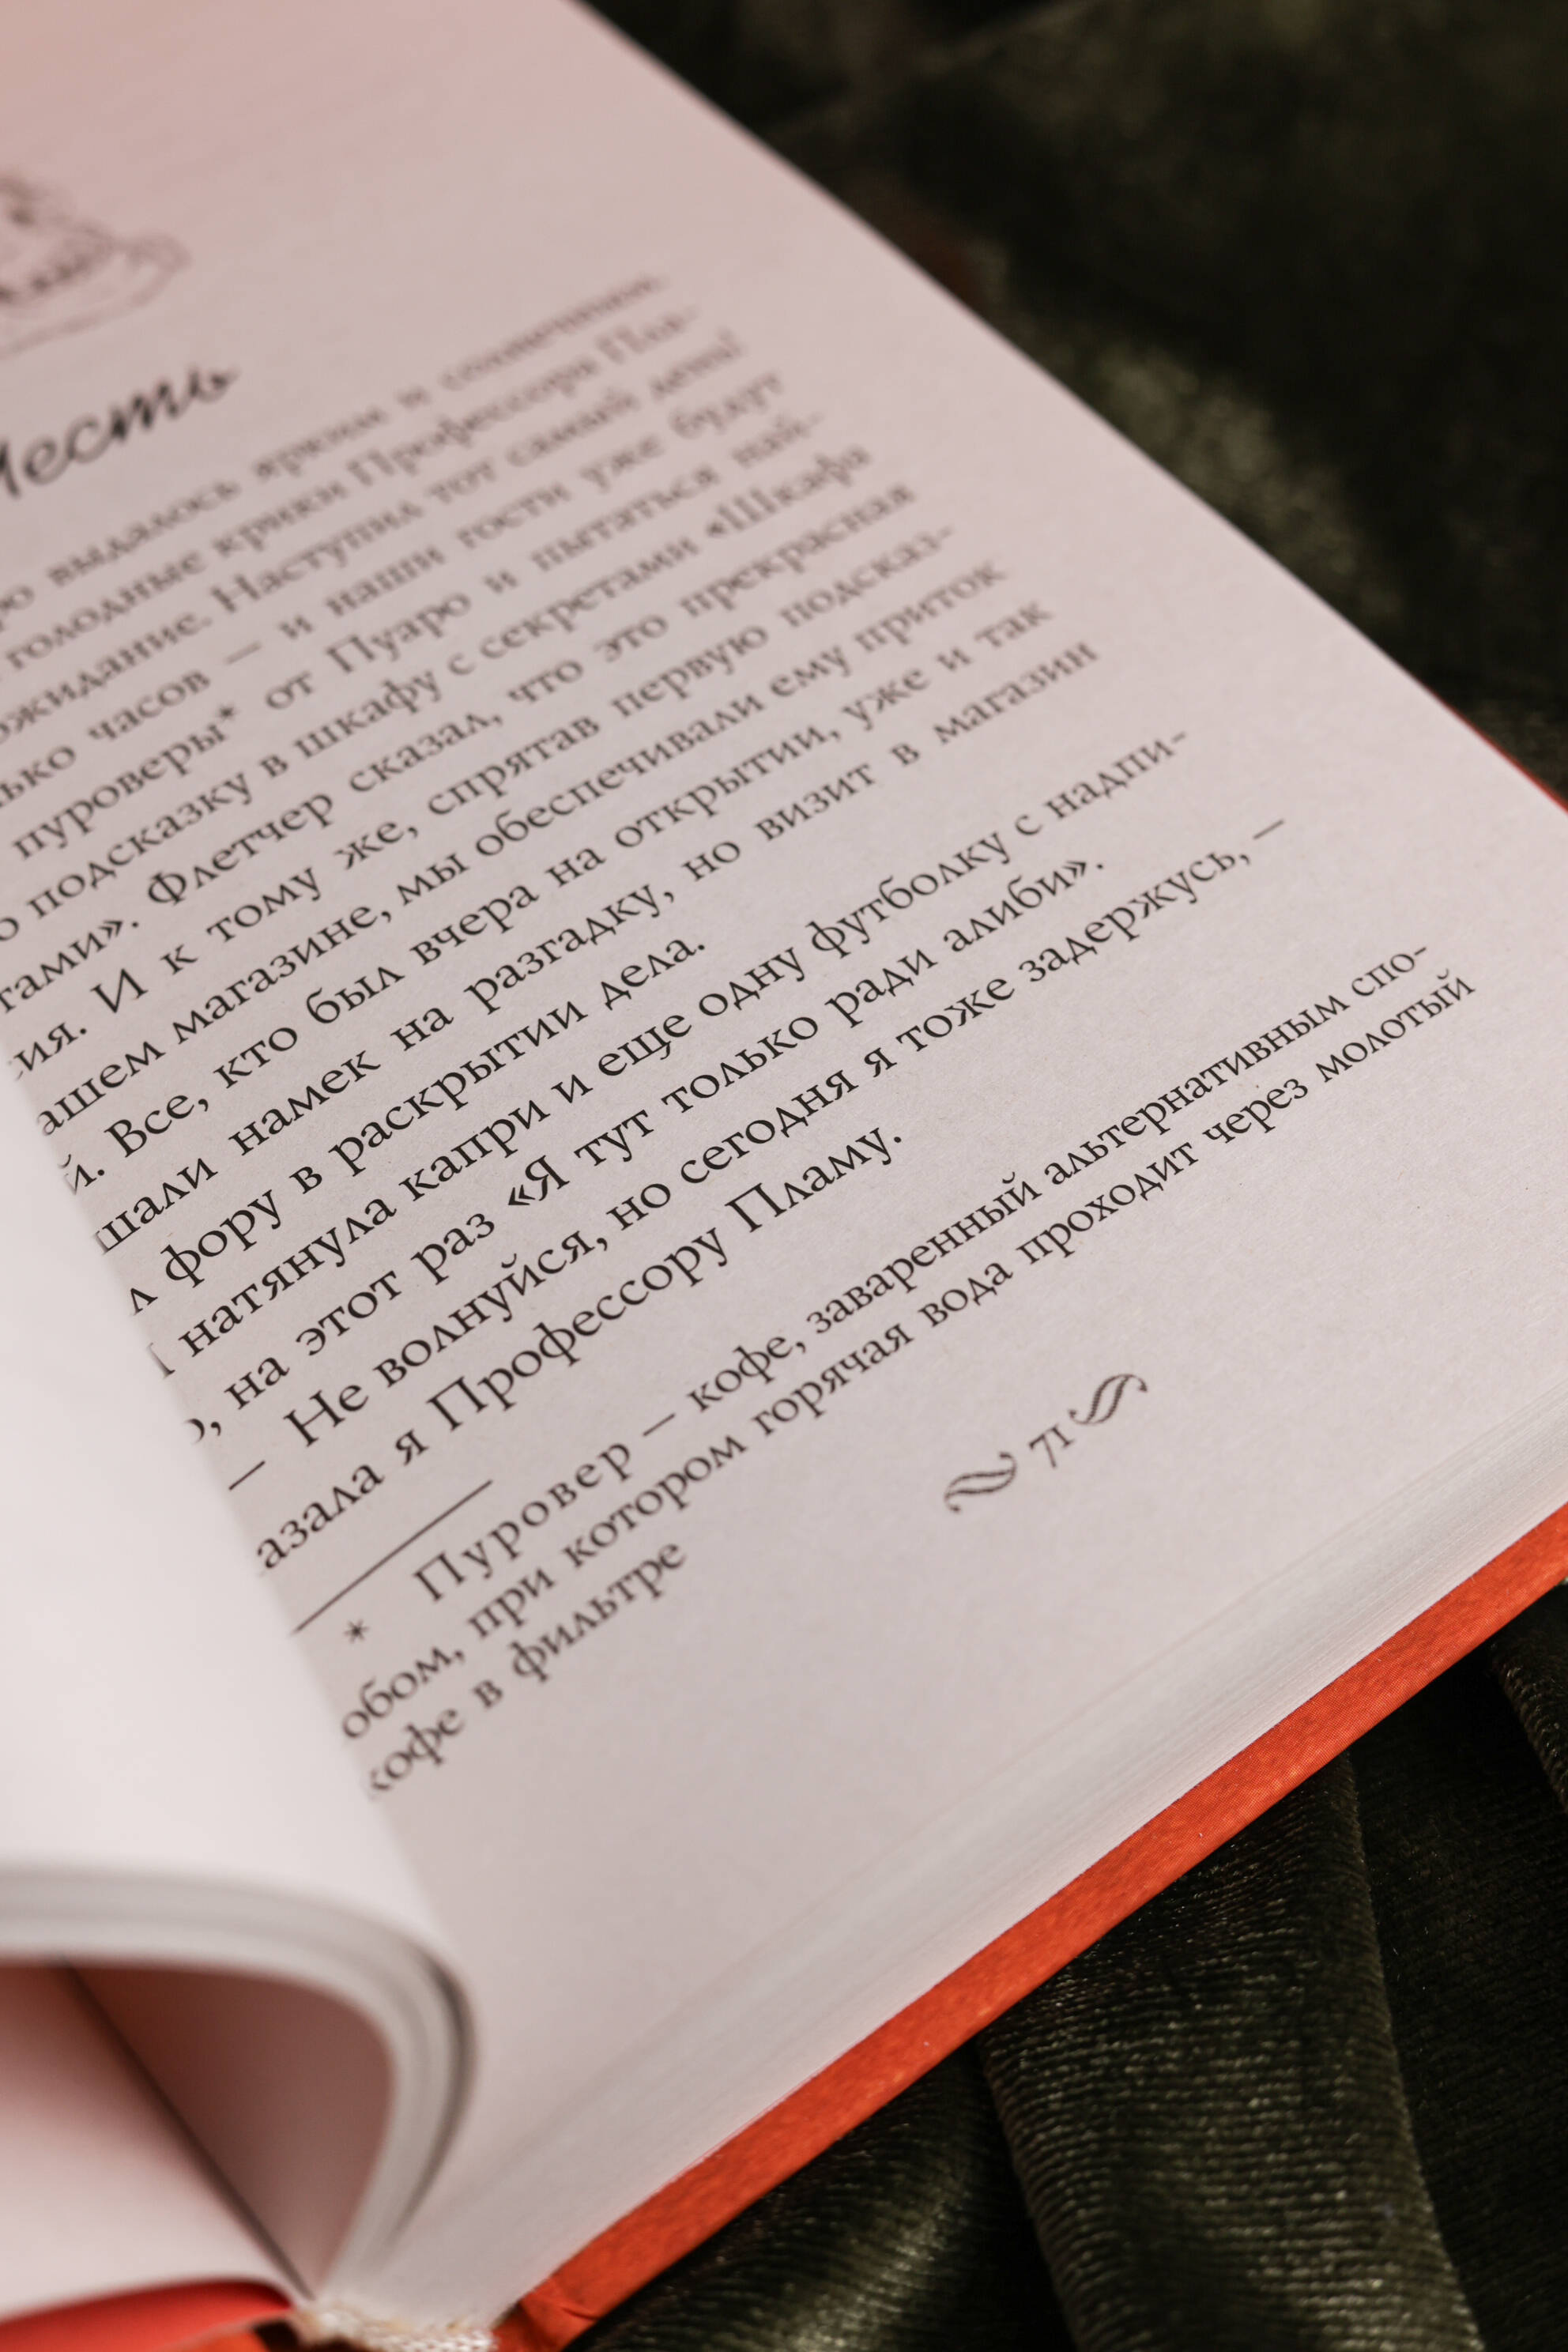 выдалось ярким и солнечным.
голодные крики Профессора Пла-
ожидание. Наступил тот самый день!
часов — и наши гости уже будут
пуроверы* от Пуаро и пытаться най-
подсказку в шкафу с секретами «Шкафа
тами». Флетчер сказал, что это прекрасная
ия. И к тому же, спрятав первую подсказ-
ашем магазине, мы обеспечивали ему приток
й. Все, кто был вчера на открытии, уже и так
шали намек на разгадку, но визит в магазин
л фору в раскрытии дела.
натянула капри и еще одну футболку с надпи-
о, на этот раз «Я тут только ради алиби».
— Не волнуйся, но сегодня я тоже задержусь, —
азала я Профессору Пламу.
* Пуровер — кофе, заваренный альтернативным спо-
обом, при котором горячая вода проходит через молотый
кофе в фильтре
71